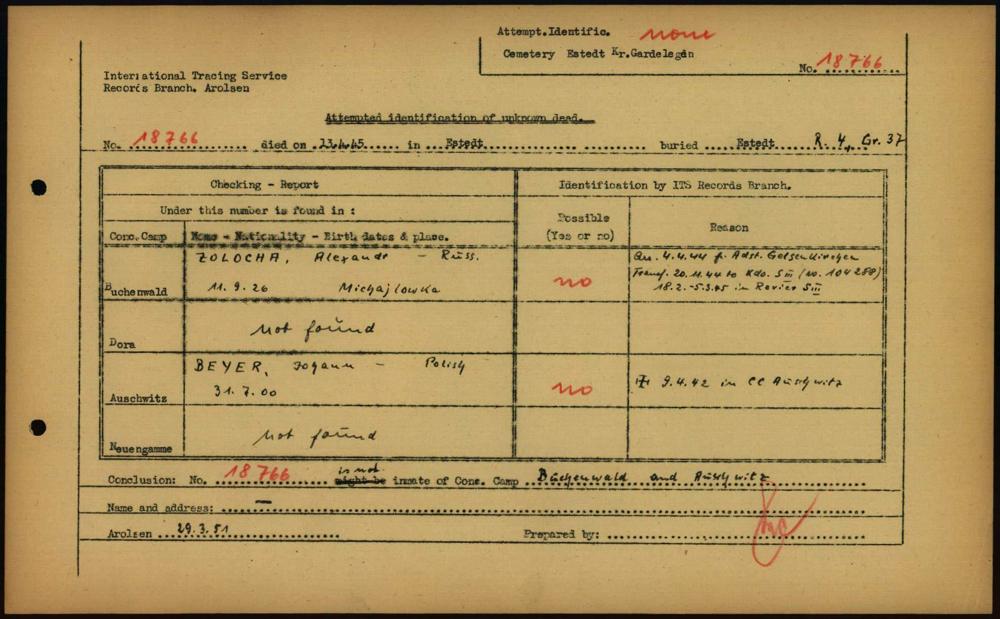 Attempt.Identific. none
Cemetery Estedt Kr.Gardelegen
No. 18766
International Tracing Service
Records Branch, Arolsen
Attempted identification of unknown dead.
No. 18766 died on 13.4.45 in Estedt buried Estedt R. 4, Gr. 37
Checking - Report
Identification by ITS Records Branch.
Under this number is found in :
Possible
(Yes or no)
Reason
Conc.Camp
Name - Nationality - Birth dates & place.
ZOLOCHA, Alexandr - Russ.
Arr. 4.4.44 f. Adst. Gelsenkirchen
Transf. 20.11.44 to Kdo. SIII (no. 104288)
Buchenwald 11.9.26 Michajlowka
no
18.2.-5.3.45 in Revier SIII
Dora not found
BEYER, Johann - Polish
Auschwitz 31.7.00
no
9.4.42 in CC Auschwitz
Neuengamme not found
Conclusion: No. 18766 might be is not inmate of Conc. Camp Buchenwald and Auschwitz
Name and address: -
Arolsen 29.3.51 Prepared by: